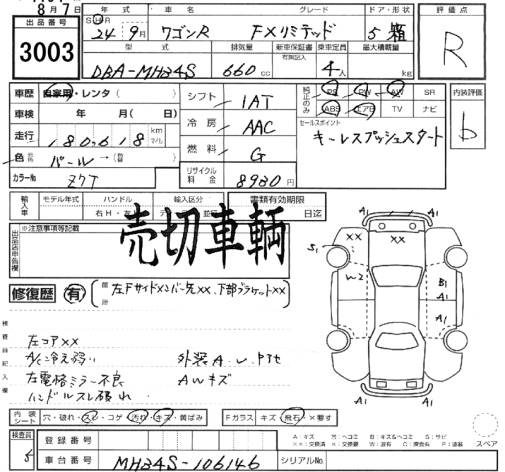 8月7日
出品番号 年式 車名 グレード ドア・形状 評価点
3003 24年 9月 ワゴンR FXリミテッド 5 箱 R
型式 排気量 新車保証書 乗車定員 最大積載量
DBA-MH34S 660cc 4人 kg
車歴 自家用・レンタ( ) シフト 1AT 純正のみ PS PW AW SR 内装評価
車検 年 月( 日) 冷房 AAC ABS エアB TV ナビ b
走行 180,618 km マイル セールスポイント
色 パール→( ) 燃料 G キーレスプッシュスタート
カラーNo Z7T リサイクル料金 8980円
輸入車 モデル年式 ハンドル 輸入区分 書類有効期限
右H・左 日迄
※注意事項等記載
売切車輌
修復歴 有 箇所 左Fサイドメンバー先××、下部ブラケット××
検査員記入欄
左コア××
A/C冷え弱い 外装A.U.PTセ
左電格ミラー不良 AWキズ
ハンドルスレ破れ
S1 ×× ×× A1 A1
W2 B1 A1 A1
A1 A1
内装シート 穴・破れ・スレ・コゲ 汚れ・キズ・黄ばみ Fガラス キズ・飛石・×要す
A:キズ B:キズ&ヘコミ S:サビ スペア
検査員 登録番号
車台番号 MH34S-106146 シリアルNo